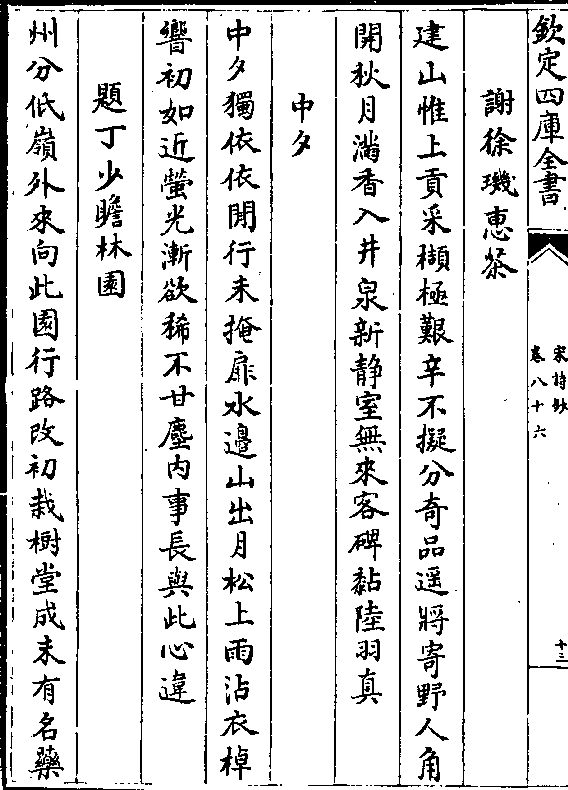 欽定四庫全書
宋詩鈔
卷八十六
十三
謝徐璣惠茶
建山惟上貢采擷極艱辛不擬分奇品遥將寄野人角
開秋月滿香入井泉新静室無來客碑黏陸羽真
中夕
中夕獨依依閒行未掩扉水邊山出月松上雨沾衣棹
響初如近螢光漸欲稀不甘塵内事長與此心違
題丁少瞻林園
州分低嶺外來向此園行路改初栽樹堂成未有名藥